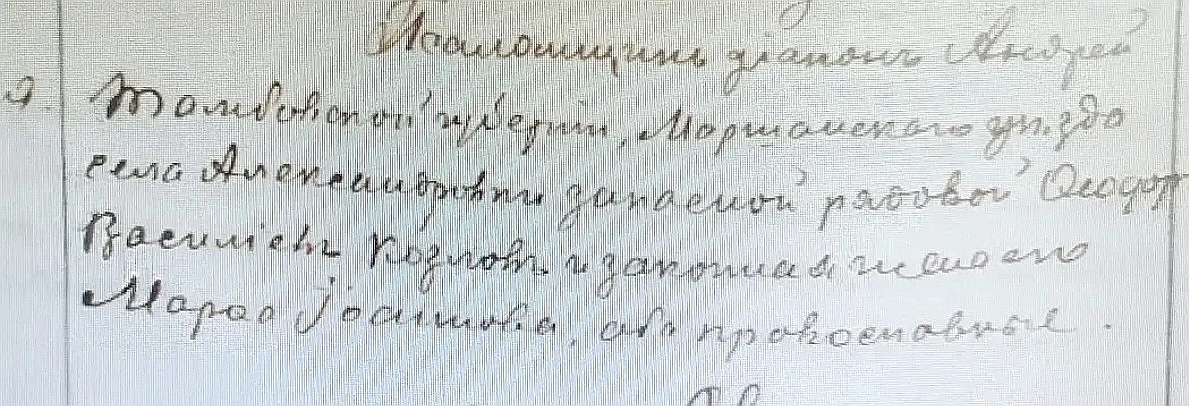 Псаломщикъ діаконъ Андрей
Тамбовской губерніи, Моршанскаго уѣзда
села Александровки запасной рядовой Ѳеодоръ
Васильевъ Козловъ и законная жена его
Марѳа Іоаннова, оба православные.